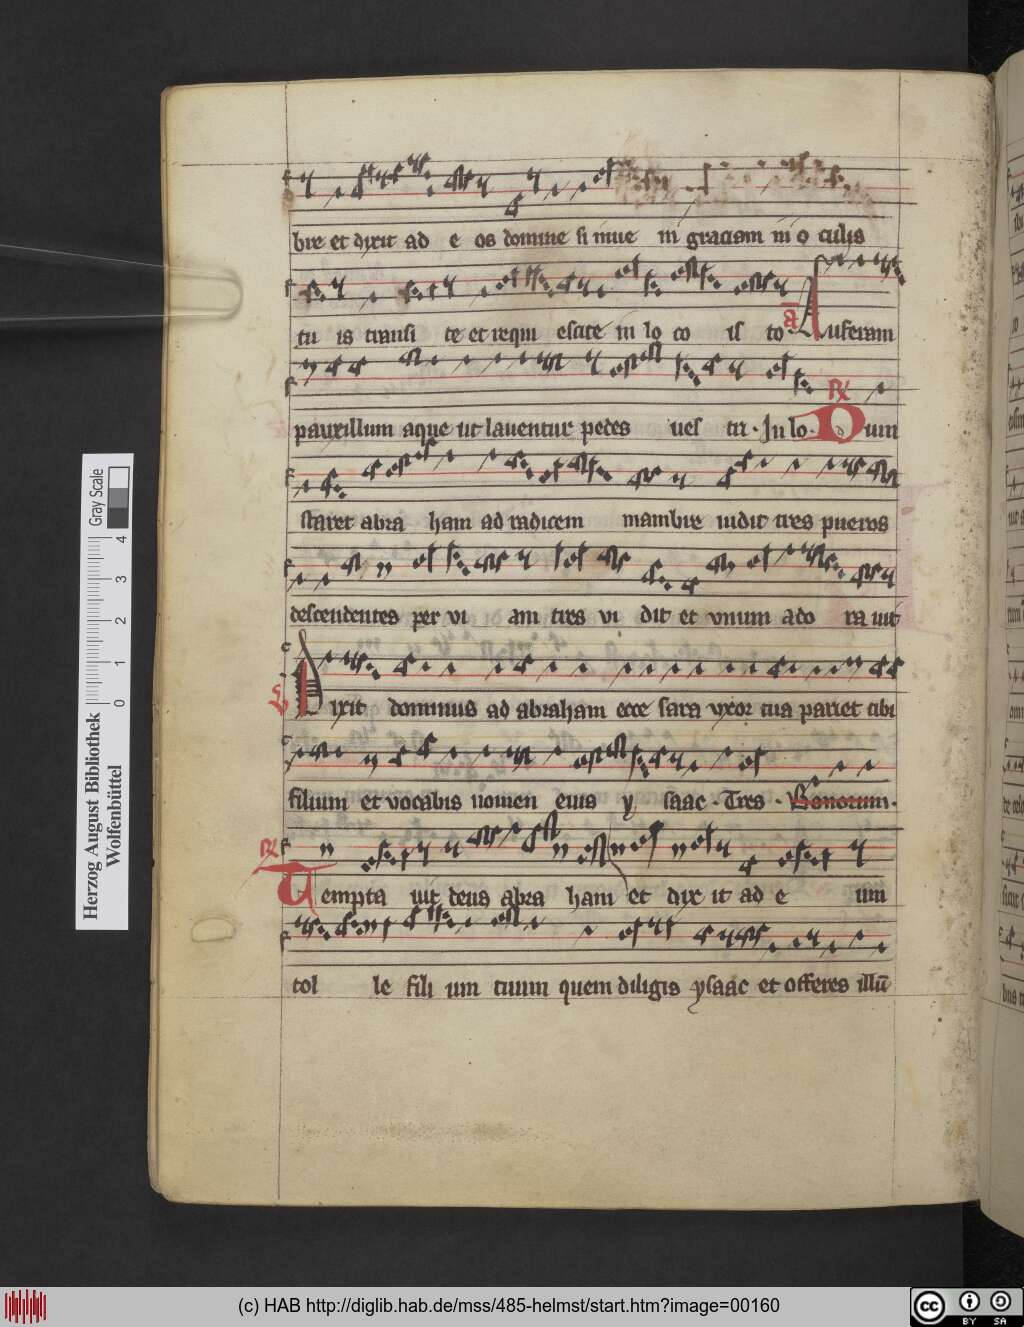 bre et dixit ad e os domine si inue ni graciam in o culis
tu is transi te et requi escite in lo co is to A Auferam
pauxillum aque ut lauentur pedes ues tri · In lo · Rx Dum
staret abra ham ad radicem mambre uidit tres pueros
descendentes per vi am tres vi dit et vnum ado ra uit
V Dixit dominus ad abraham ecce sara vxor tua pariet tibi
filium et vocabis nomen eius y saac · Tres · Bonorum ·
Rx Tempta uit deus abra ham et dix it ad e um
tol le fili um tuum quem diligis ysaac et offeres illū
Herzog August Bibliothek
Wolfenbüttel
Gray Scale
0 1 2 3 4
(c) HAB http://diglib.hab.de/mss/485-helmst/start.htm?image=00160
cc BY SA